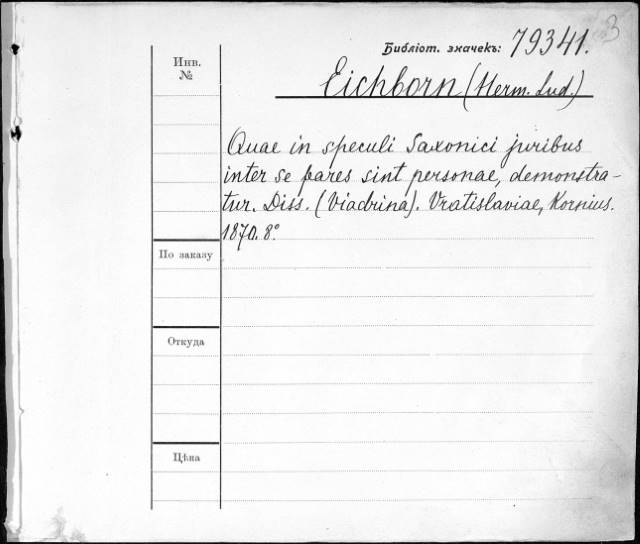 3
Библіот. значекъ: 79341.
Инв.
№
Eichborn (Herm. Lud.)
Quae in speculi Saxonici juribus
inter se pares sint personae, demonstra-
tur. Diss. (Viadrina). Vratislaviae, Kornius.
1870. 8°
По заказу
Откуда
Цѣна